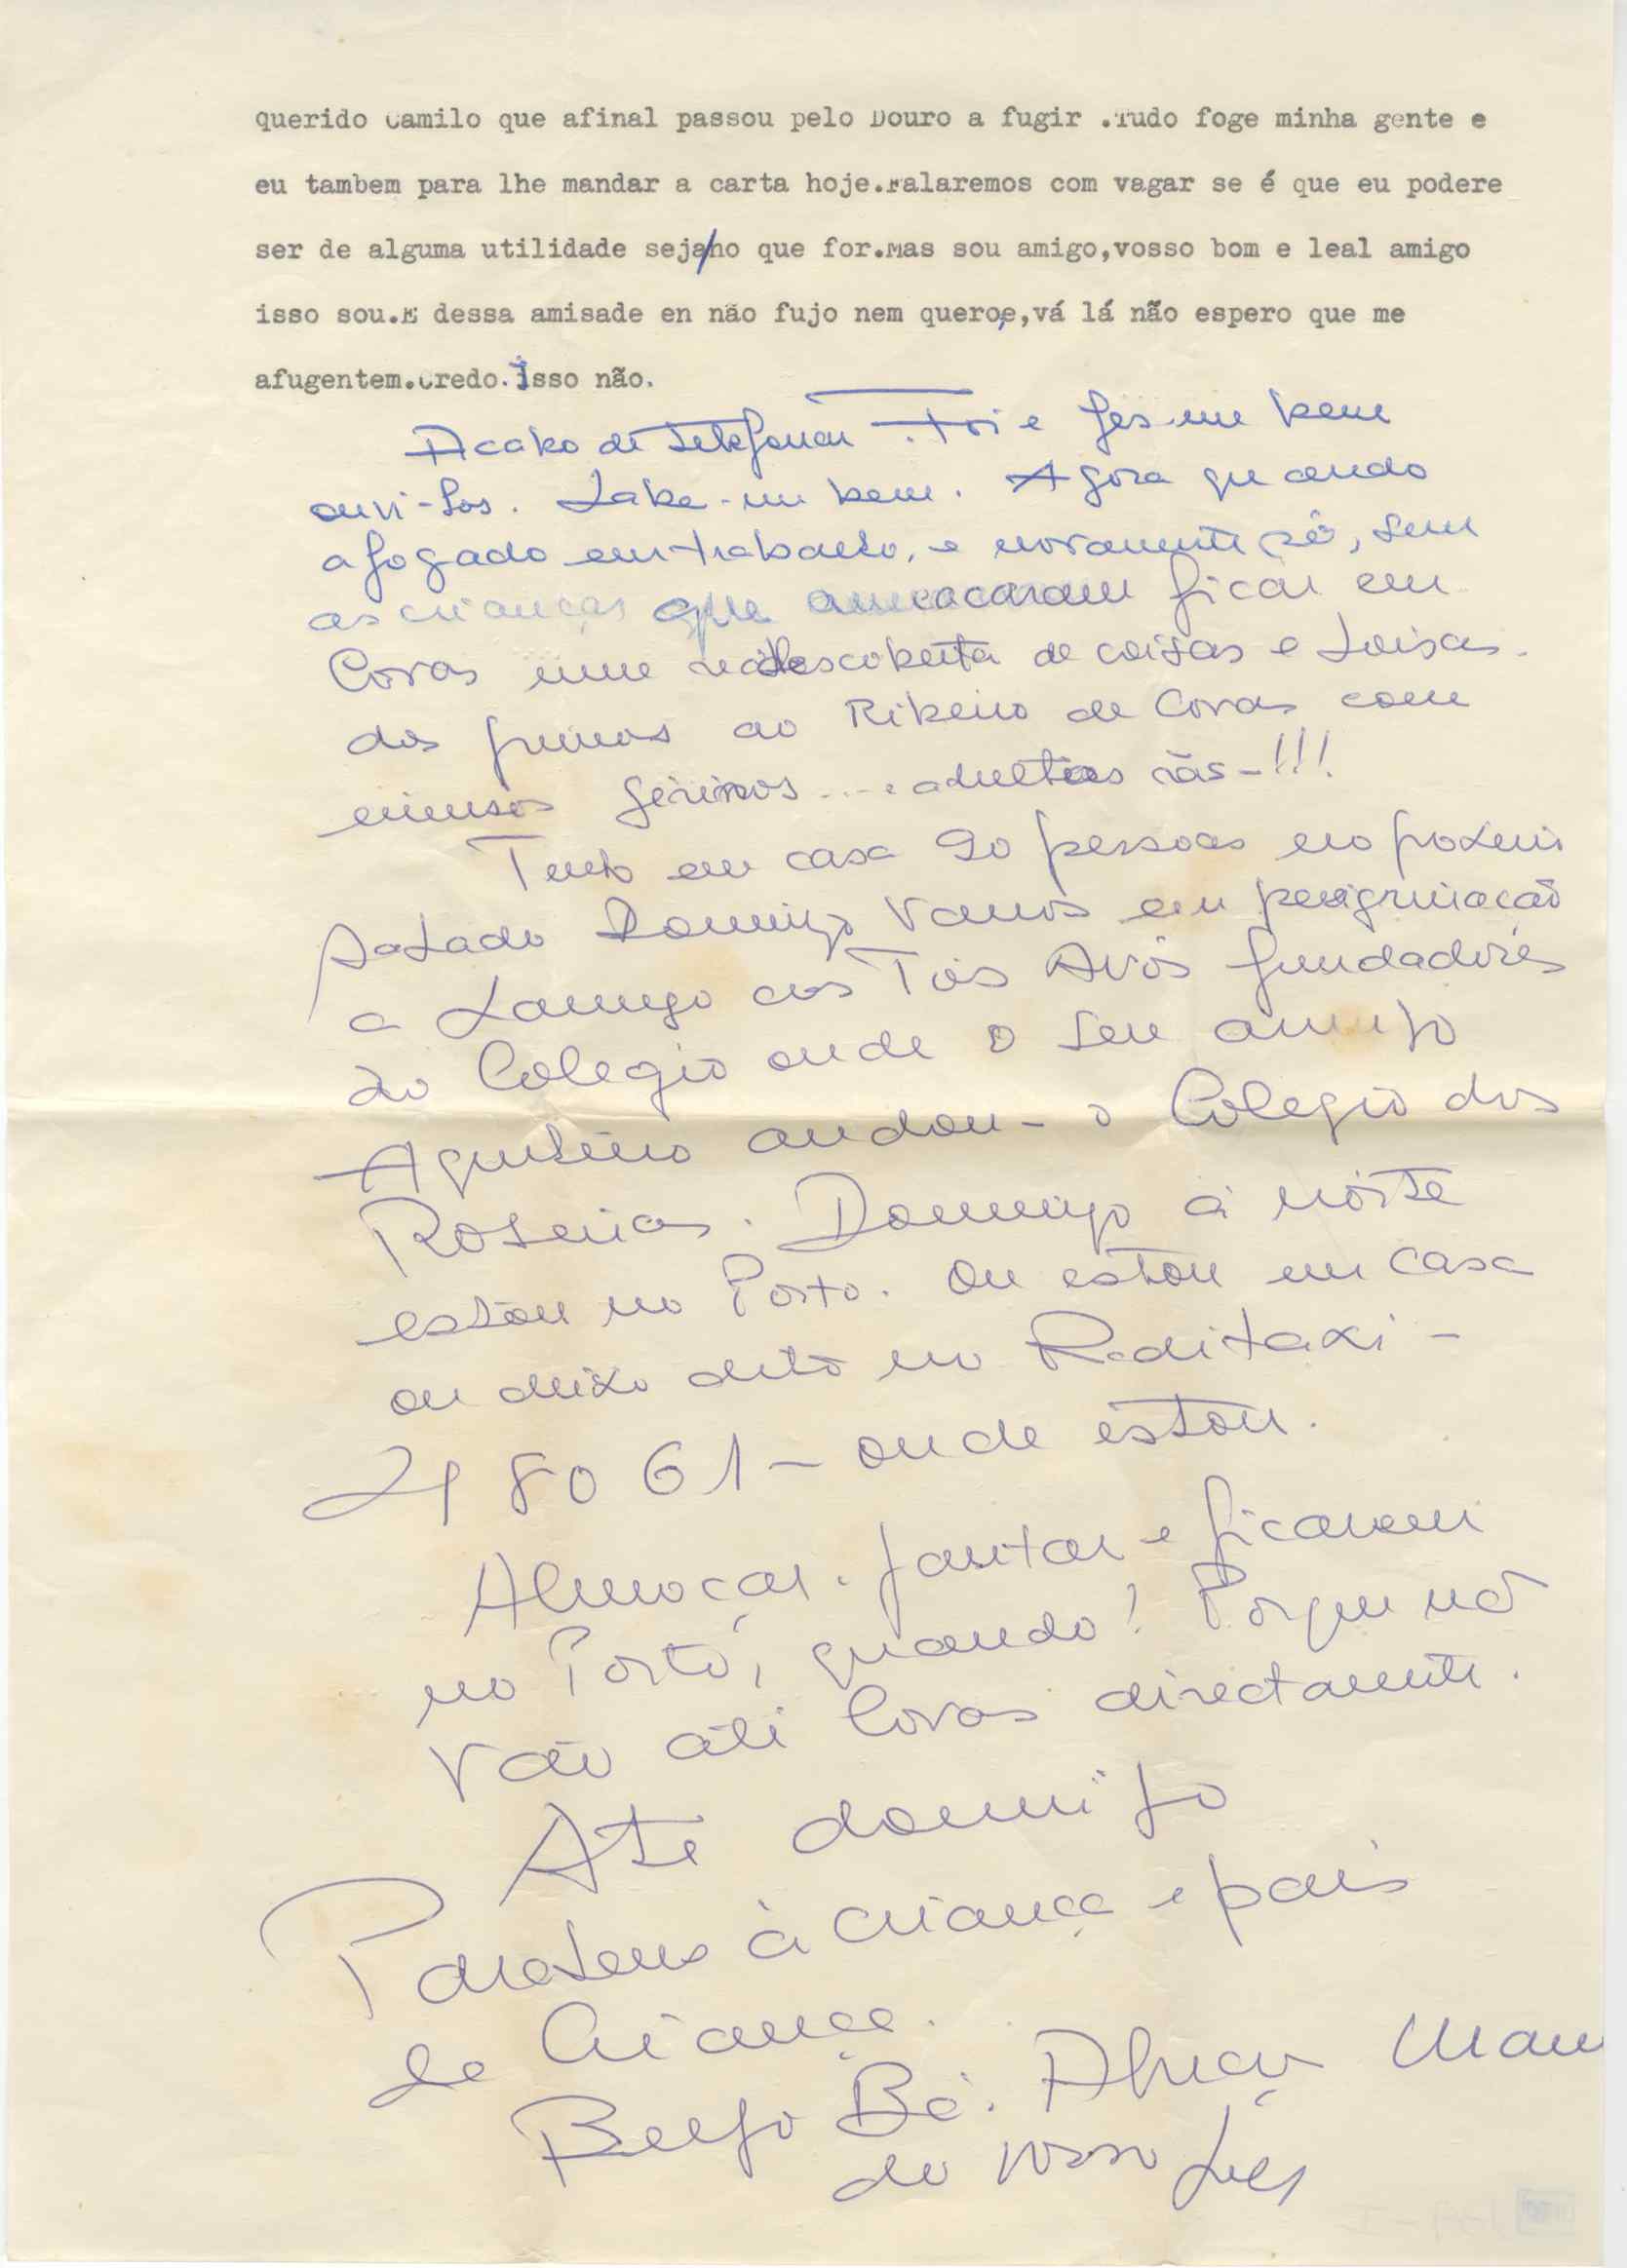 querido Camilo que afinal passou pelo Douro a fugir .Tudo foge minha gente e
eu tambem para lhe mandar a carta hoje.Falaremos com vagar se é que eu podere
ser de alguma utilidade seja/no que for.Mas sou amigo,vosso bom e leal amigo
isso sou.E dessa amisade en não fujo nem quero,e,vá lá não espero que me
afugentem.Credo.Isso não.
Acabo de telefonar. Foi e fes-me bem
ouvi-los. Sabe-me bem. Agora que ando
afogado em trabalho, e novamente só, sem
as crianças que ameaçaram ficar em
Covas numa redescoberta de coisas e loisas.
dos primos ao Ribeiro de Covas com
imensos girinos ... e adultas rãs - !!!
Tenho em casa 90 pessoas no proximo
Sabado Domingo vamos em perigrinação
a Lamego aos Tios Avós fundadores
do Colegio onde o seu amigo
Aquilino andou - o Colegio dos
Roseiras. Domingo à noite
estou no Porto. Ou estou em casa
ou deixo dito no Raditaxi -
2 80 61 - onde estou.
Almoçar. jantar e ficarem
no Porto, quando! Porque não
vão até Covas directamente.
Até domingo
Parabens à criança e pais
da Criança.
Beijo Bé. Abraço
do vosso